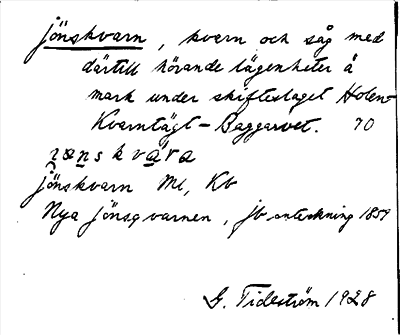 jönskvarn, kvarn och såg med
därtill hörande lägenheter å
mark under skifteslaget Holen-
Kvarntägt-Baggarvet. 70
jönskvarn Ml, Kb
Nya jönsqvarnen, jb anteckning 1859
G. Tideström 1928